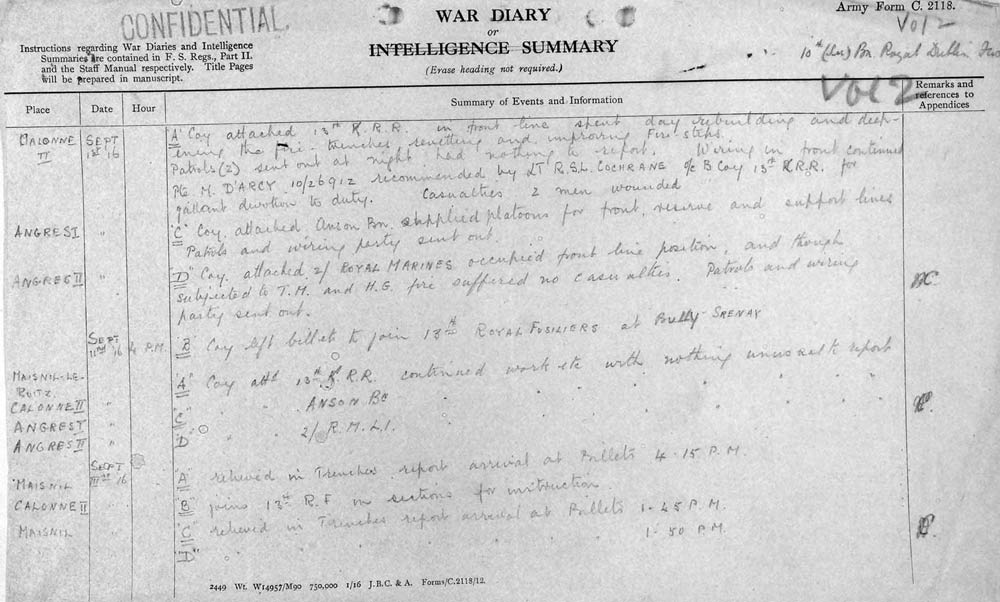 CONFIDENTIAL.
WAR DIARY
or
INTELLIGENCE SUMMARY
(Erase heading not required.)
Army Form C. 2118.
Vol 2
10th (Ser) Bn Royal Dublin Fus
Vol 2
Instructions regarding War Diaries and Intelligence
Summaries are contained in F. S. Regs., Part II.
and the Staff Manual respectively. Title Pages
will be prepared in manuscript.
Place Date Hour Summary of Events and Information Remarks and references to Appendices
CALONNE II SEPT 1st 16 "A" Coy attached 13th K.R.R. in front line spent day rebuilding and deep-
ening the fire-trenches revetting and improving Fire steps.
Patrols (2) sent out at night had nothing to report. Wiring in front continued
Pte M. D'ARCY 10/26912 recommended by LT R.S.L. COCHRANE o/c B Coy 13th K.R.R. for
gallant devotion to duty. Casualties 2 men wounded
ANGRES I " "C" Coy. attached Anson Bn. supplied platoons for front, reserve and support lines
Patrols and wiring party sent out.
ANGRES II " "D" Coy. attached 2/ ROYAL MARINES occupied front line position, and though
subjected to T.M. and H.G. fire suffered no casualties. Patrols and wiring
party sent out.
SEPT IInd 16 4 P.M. "B" Coy left billets to join 13th ROYAL FUSILIERS at Bully-GRENAY
MAISNIL-LE-RUITZ
CALONNE II " "A" Coy attd 13th K.R.R. continued work etc with nothing unusual to report
ANGRES I " "C" " " ANSON Bn " " " " "
ANGRES II " "D" " " 2/ R.M.L.I. " " " " "
MAISNIL SEPT IIIrd 16 "A" relieved in Trenches report arrival at Billets 4.15 P.M.
CALONNE II "B" joins 13th R.F in sections for instruction.
MAISNIL "C" relieved in Trenches report arrival at Billets 1.45 P.M.
"D" " " " " " 1.50 P.M.
2449 Wt. W14957/M90 750,000 1/16 J.B.C. & A. Forms/C.2118/12.